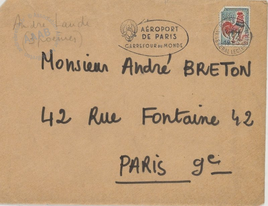 André Laude
(3 Poèmes)
AÉROPORT
DE PARIS
CARREFOUR DU MONDE
Monsieur André BRETON
42 Rue Fontaine 42
PARIS 9e